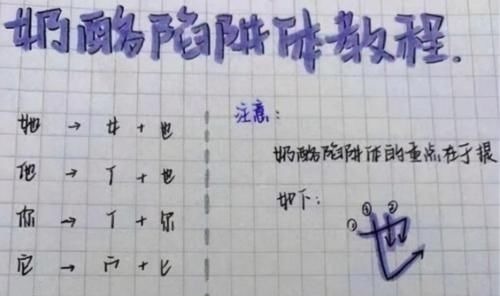 奶酪陷阱体教程.
她 → 女 + 也
他 → 亻 + 也
你 → 亻 + 尔
它 → 宀 + 匕
注意:
奶酪陷阱体的重点在于提
如下:
① ②
也